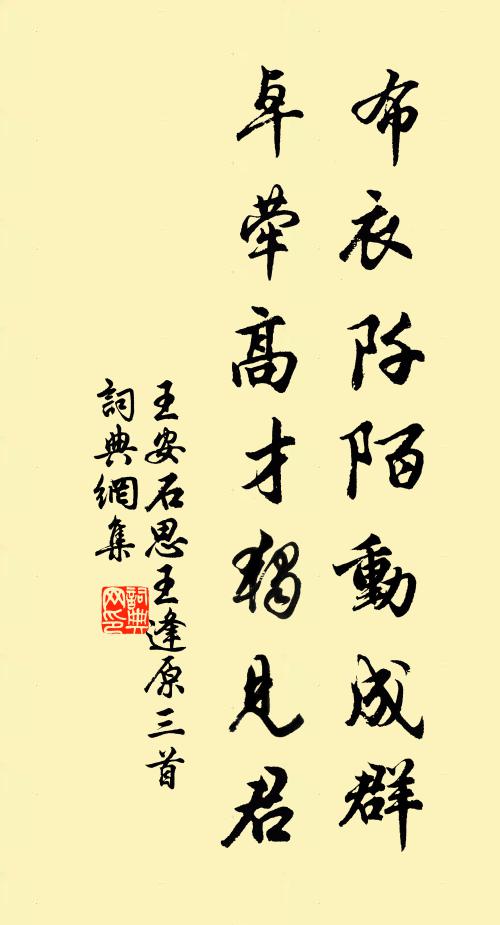 布衣阡陌動成群
卓犖高才獨見君
王安石思王逢原三首
詞典網集
詞典
网印